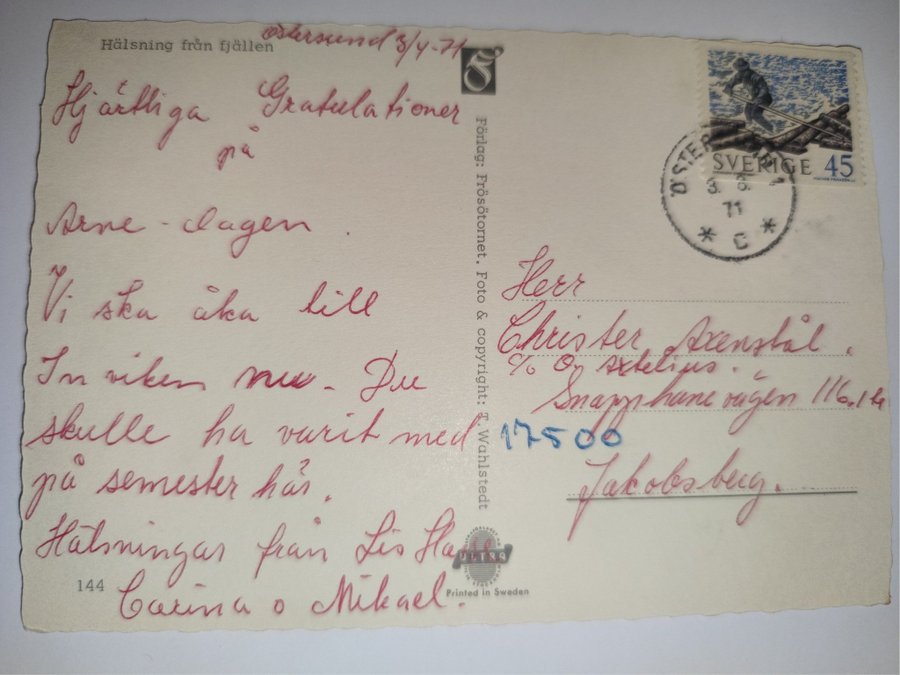 Hälsning från fjällen
Östersund 3/4-71
Hjärtliga Gratulationer
på
Arne-dagen.
Vi ska åka till
Inviken nu. Du
skulle ha varit med
på semester här.
Hälsningar från Lis
Carina o Mikael.
144
Förlag: Frösötornet. Foto & copyright: T. Wahlstedt
ULTRA
Printed in Sweden
SVERIGE 45
3. 71
* C *
Herr
Christer Axenstål.
c/o O. Axtelius.
Snapphanevägen 116.1tr
17500
Jakobsberg.